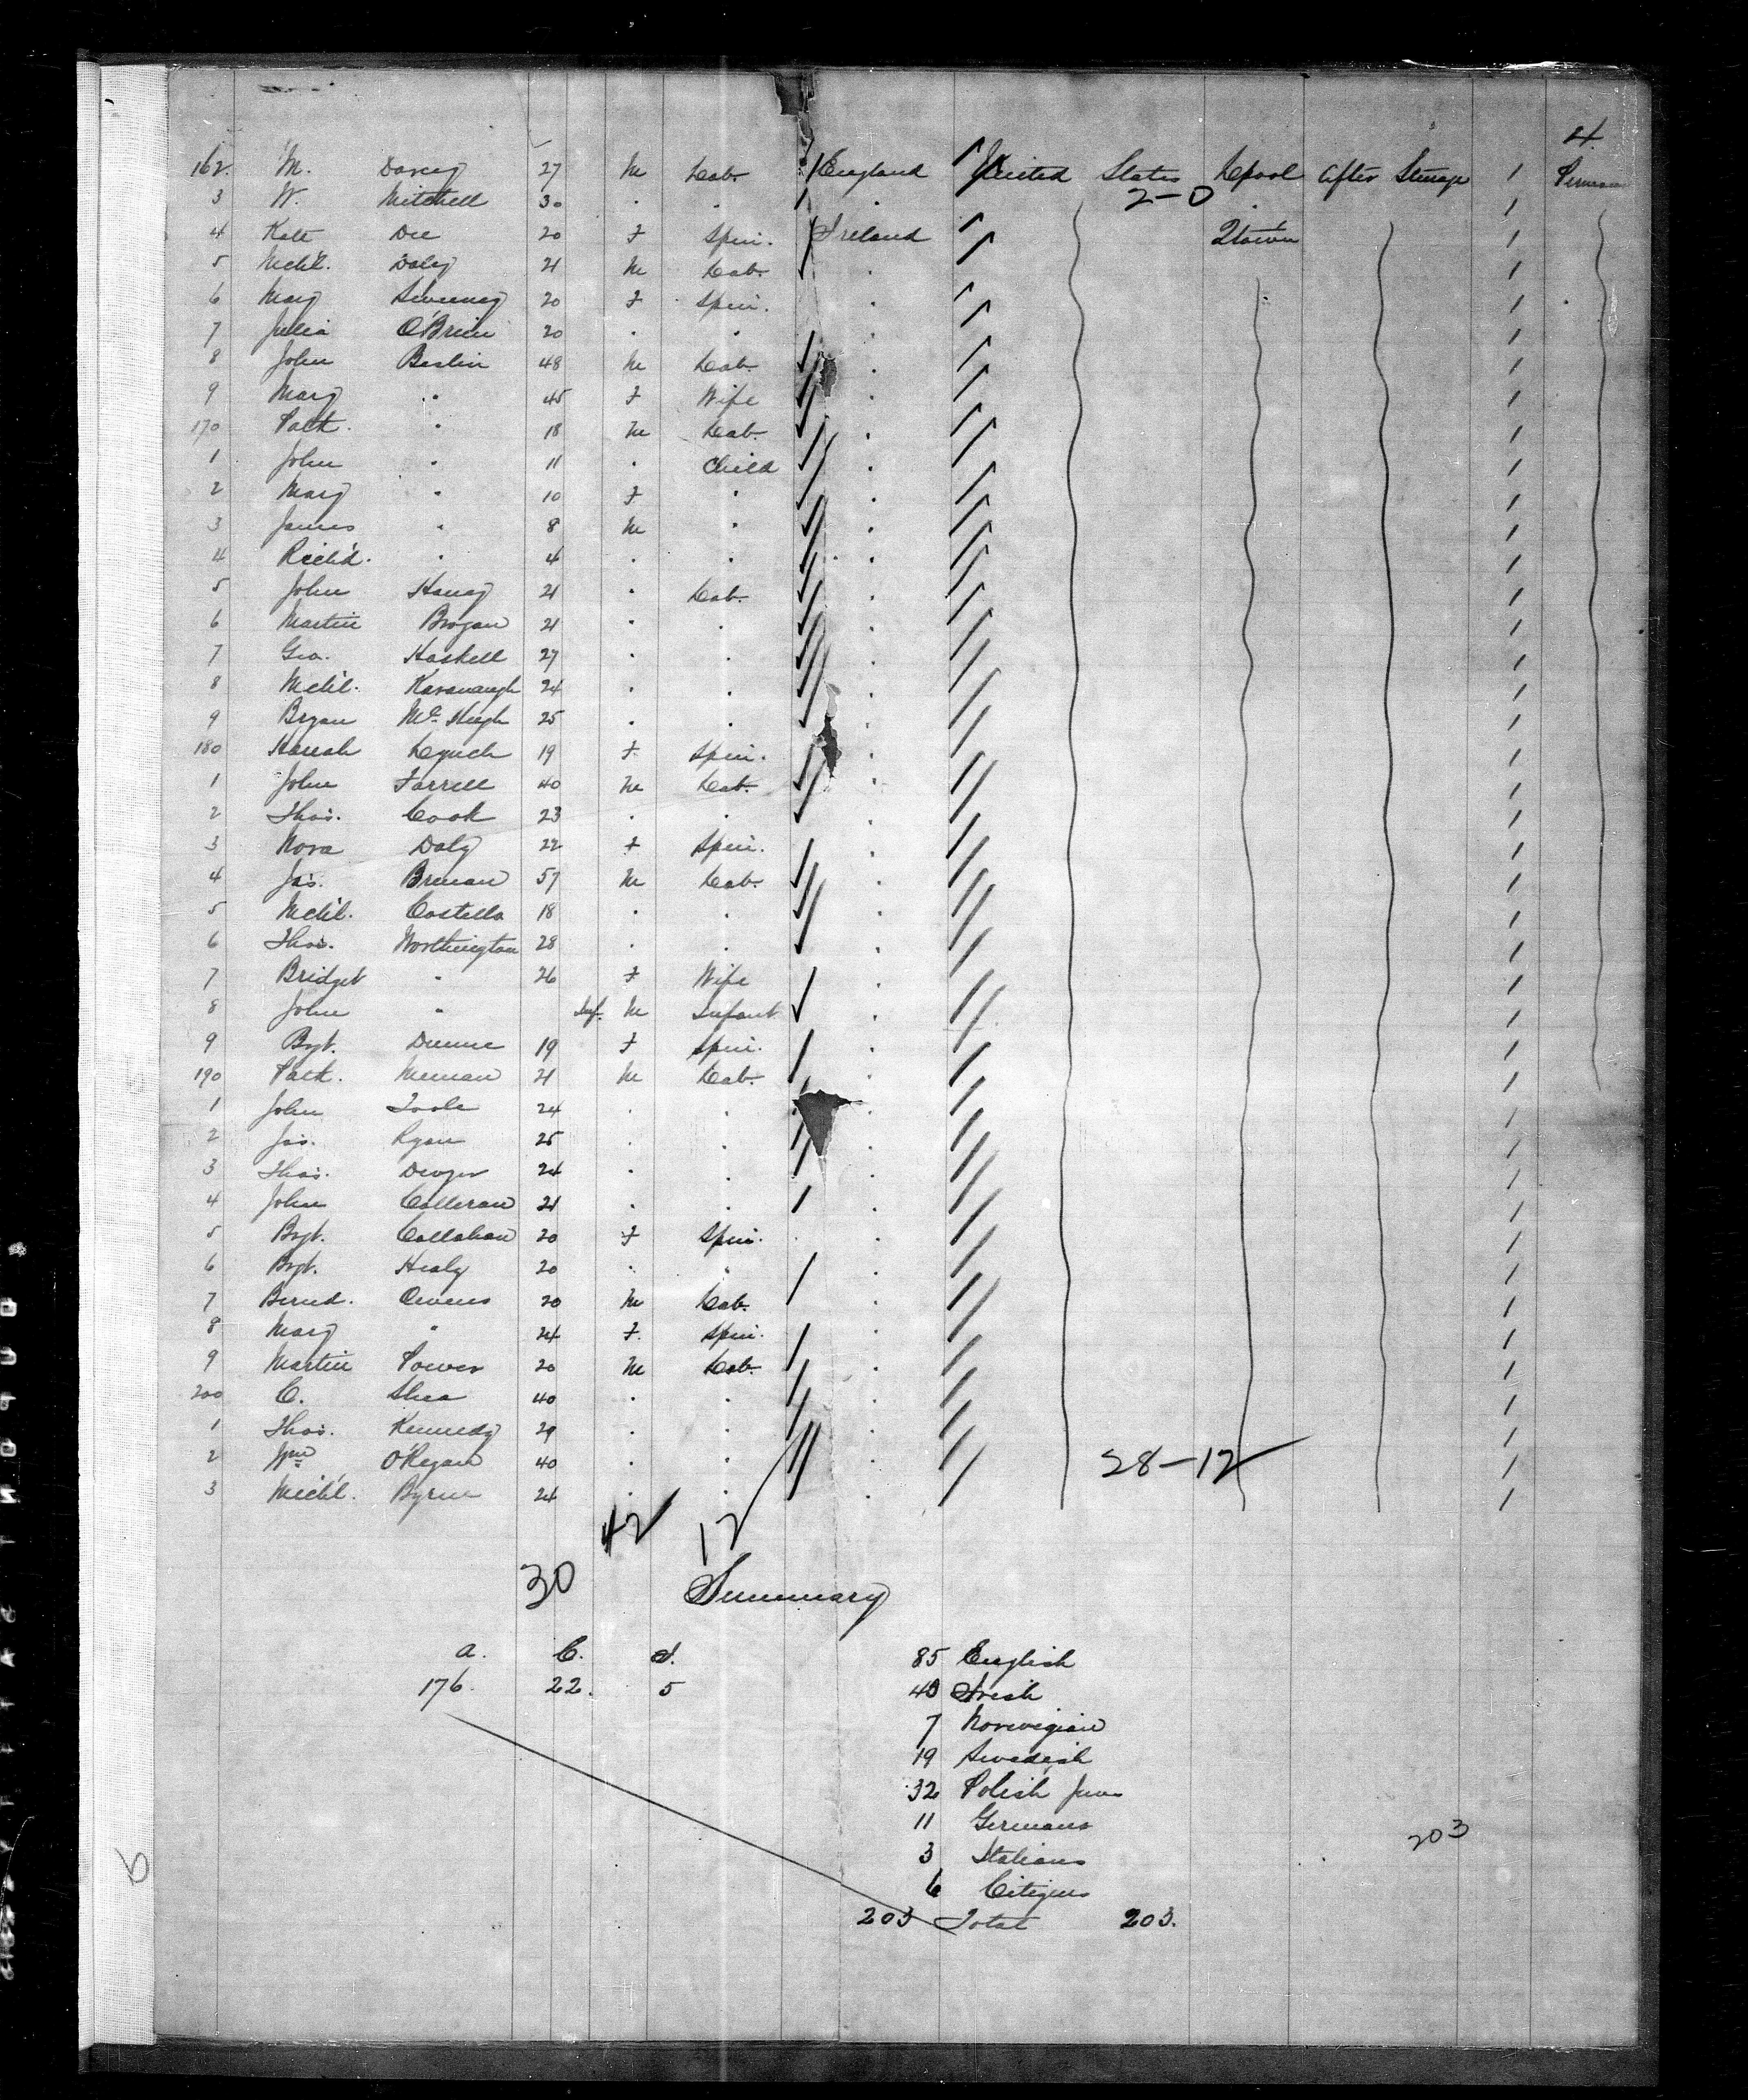 4.
162. M. Darcy 27 M Lab. England United States L'pool After Steerage 1
3 W. Mitchell 30 . . . 2-0 . 1
4 Kate Dee 20 F Spin. Ireland Qtown 1
5 Mchl. Daly 21 M Lab. . 1
6 Mary Sweeney 20 F Spin. . 1
7 Julia O'Brien 20 . . . 1
8 John Beslin 48 M Lab. . 1
9 Mary " 45 F Wife . 1
170 Patk. " 18 M Lab. . 1
1 John " 11 . Child . 1
2 Mary " 10 F " . 1
3 James " 8 M " . 1
4 Rich'd. " 4 . . . 1
5 John 21 . Lab. . 1
6 Martin Brogan 21 . . . 1
7 Geo. Haskell 27 . . . 1
8 Mchl. Kavanaugh 24 . . . 1
9 Bryan Mc Hugh 25 . . . 1
180 Hannah Lynch 19 F Spin. . 1
1 John Farrell 40 M Lab. . 1
2 Thos. Cook 23 . . . 1
3 Nora Daly 22 F Spin. . 1
4 Jas. Brenan 57 M Lab. . 1
5 Mchl. Costello 18 . . . 1
6 Thos. Worthington 28 . . . 1
7 Bridget " 26 F Wife . 1
8 John " Inf. M Infant . 1
9 Bgt. Dunne 19 F Spin. . 1
190 Patk. 21 M Lab. . 1
1 John Toole 24 . . . 1
2 Jas. Ryan 25 . . . 1
3 Thos. Dwyer 24 . . . 1
4 John Calleran 21 . . . 1
5 Bgt. Callahan 20 F Spin. . 1
6 Bgt. Healy 20 . . . 1
7 Bernd. Owens 20 M Lab. . 1
8 Mary " 24 F. Spin. . 1
9 Martin Power 20 M Lab. . 1
200 C. Shea 40 . . . 1
1 Thos. Kennedy 29 . . . 1
2 Wm O'Regan 40 . . . 28-12 1
3 Mich'l. Byrne 24 . . . 1
42 12
30 Summary
a. C. I.
176. 22. 5
85 English
40 Irish
7 Norwegian
19 Swedish
32 Polish Jews
11 Germans
3 Italians
6 Citizens
203 Total 203.
203
6